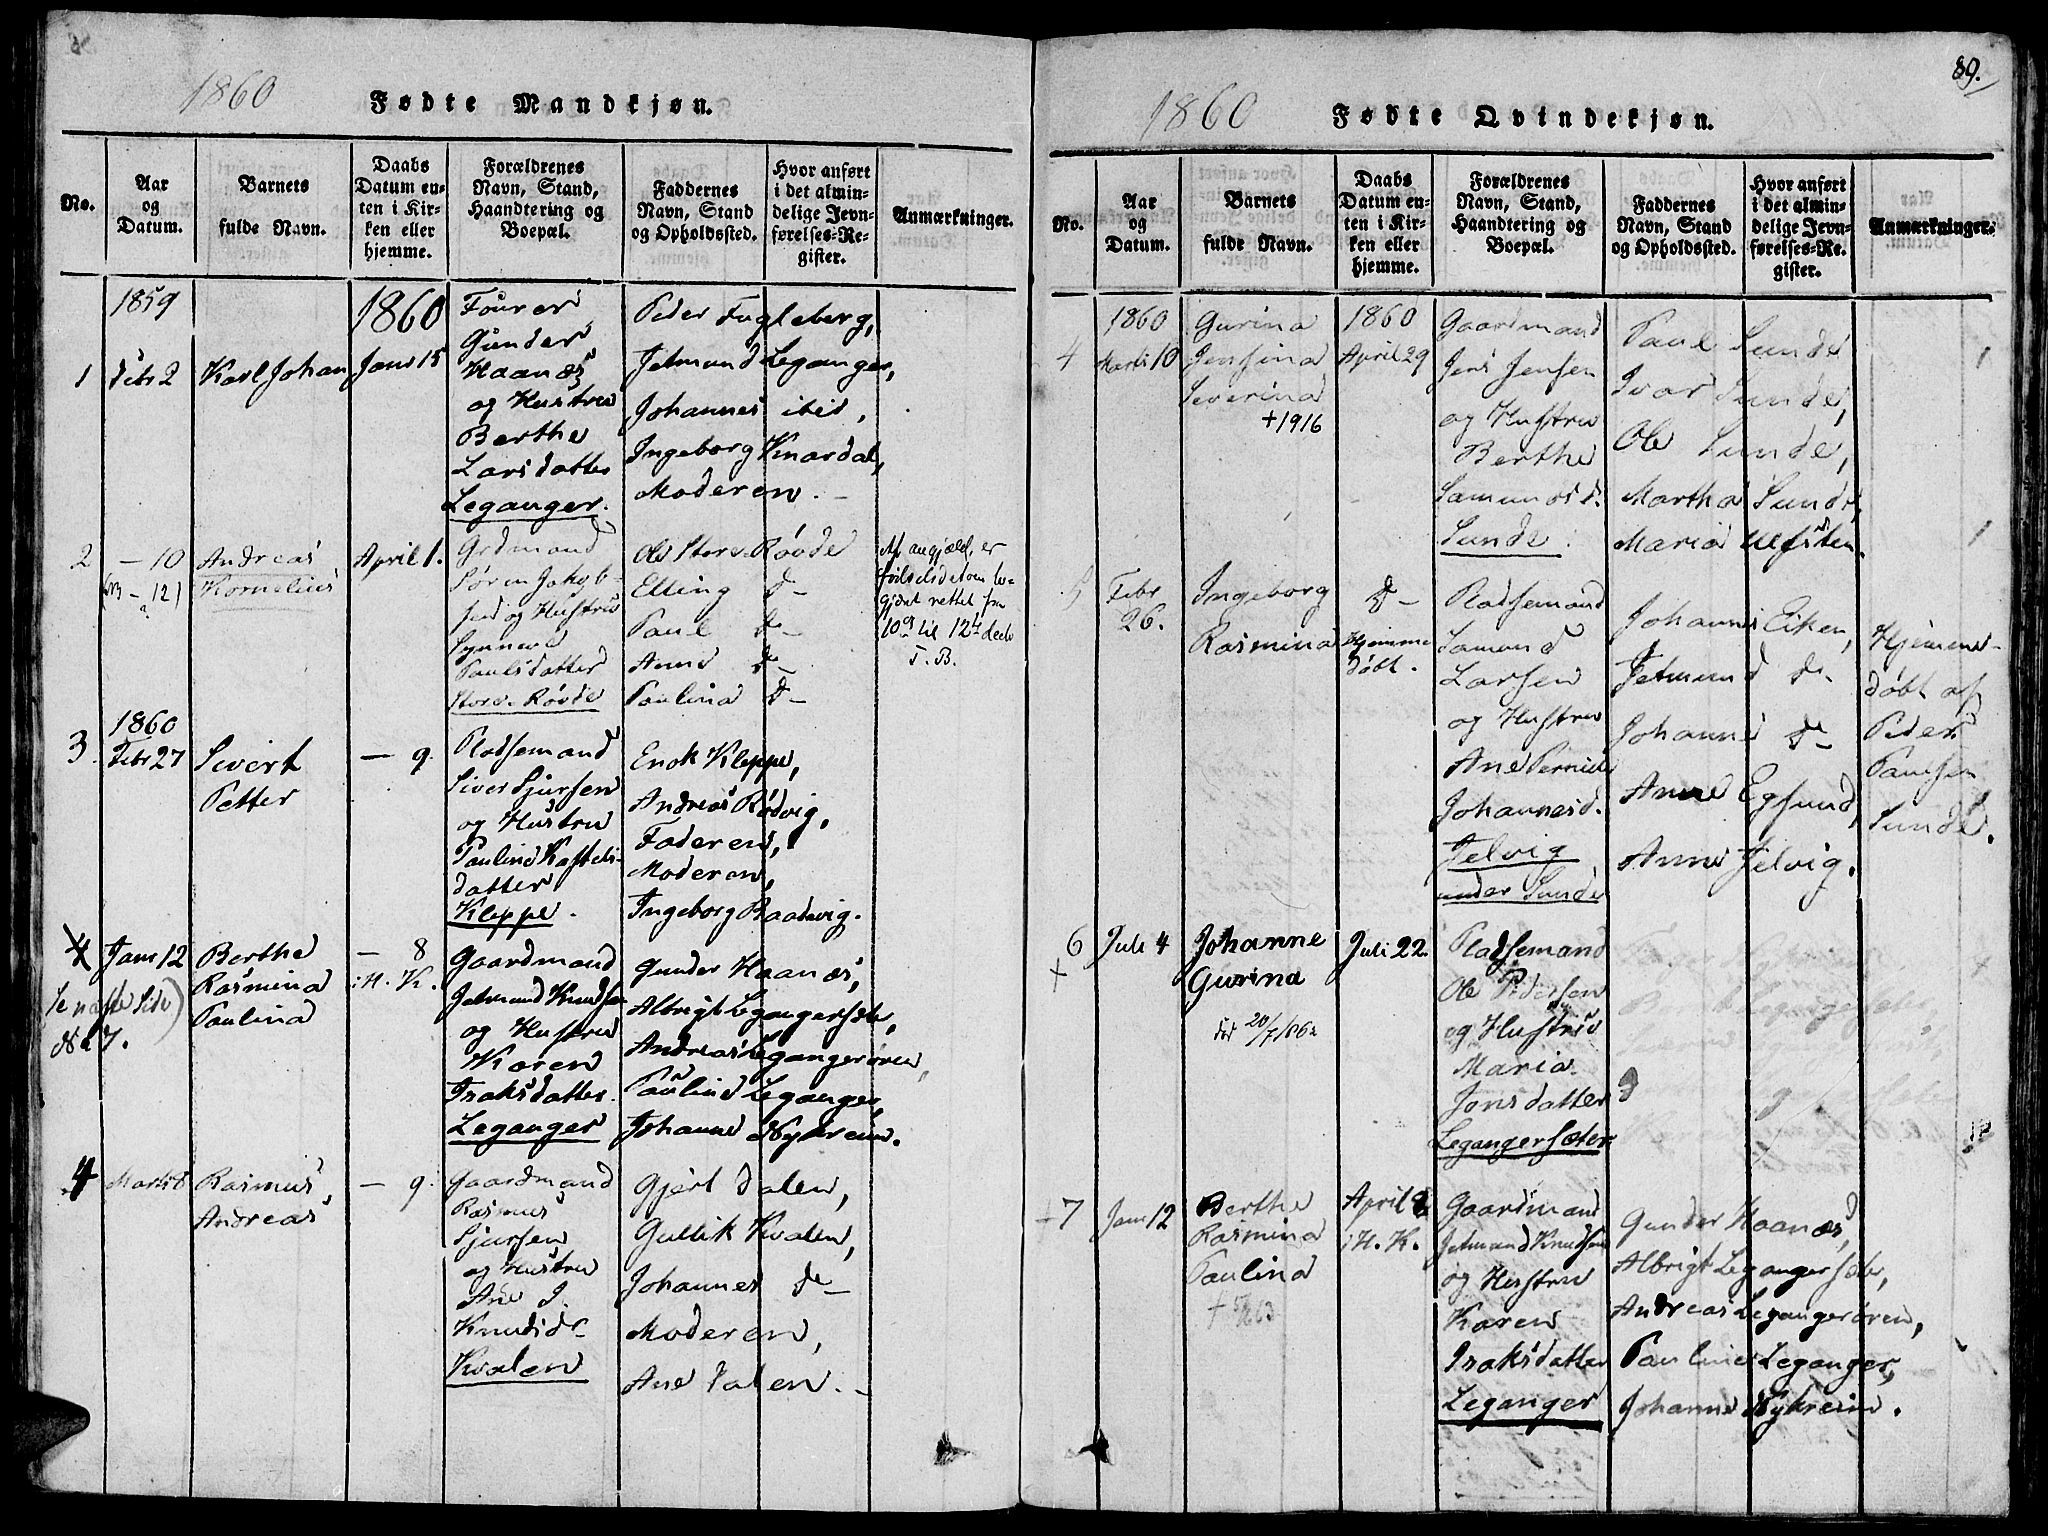 1860 Fødte Mandkjøn.
No.
Aar
og
Datum.
Barnets
fulde Navn.
Daabs
Datum en-
ten i Kir-
ken eller
hjemme.
Forældrenes
Navn, Stand,
Haandtering og
Boepæl.
Faddernes
Navn, Stand
og Opholdssted.
Hvor anført
i det almin-
delige Jevn-
førelses-Re-
gister.
Anmærkninger.
1
1859
Debr 2
Karl Johan
1860
Janr 15
Fourer
Gunder
Haanæs
og Hustru
Berthe
Larsdatter
Leganger.
Peder Fugleberg,
Jetmund Leganger,
Johannes ibid,
Ingeborg Knardal,
Moderen.
2
— 10
— 12)
Andreas
Kornelius
April 1.
Grdmand
Søren Jakob-
sen og Hustru
Synneve
Paulsdatter
Store-Røvde
Ole Store-Røvde
Elling d-
Paul d-
Anne d-
Paulina d-
Af angjæld. er
fødselsdatoen be-
gjært rettet fra
10de til 12te decb
T. B.
3
1860
Febr 27
Sivert
Petter
— 9
Pladsemand
Siver Sjursen
og Hustru
Pauline Kastels-
datter
Kleppe.
Enok Kleppe,
Andreas Rødvig,
Faderen,
Moderen,
Ingeborg Raadvig.
4
Janr 12
Se næste Side)
No 7.
Berthe
Rasmina
Paulina
— 8
i H. K.
Gaardmand
Jetmund Knudsen
og Hustru
Karen
Iraksdatter
Leganger
Gunder Haanæs,
Albrigt Legangersæter,
Andreas Legangerøren,
Pauline Leganger,
Johanne Nykreim.
4
Marts 8
Rasmus
Andreas
— 9
Gaardmand
Rasmus
Sjursen
og Hustru
Ane J.
Knudsdr
Kvalen
Gjert Dalen,
Gullik Kvalen,
Johannes d-
Moderen,
Ane Dalen.
89.
1860 Fødte Qvindekjøn.
No.
Aar
og
Datum.
Barnets
fulde Navn.
Daabs
Datum en-
ten i Kir-
ken eller
hjemme.
Forældrenes
Navn, Stand,
Haandtering og
Boepæl.
Faddernes
Navn, Stand
og Opholdssted.
Hvor anført
i det almin-
delige Jevn-
førelses-Re-
gister.
Anmærkninger.
4
1860
Marts 10
Gurina
Jensina
Severina
+1916
1860
April 29
Gaardmand
Jens Jensen
og Hustru
Berthe
Samunds d.
Sunde
Paul Sunde
Ivar Sunde,
Ole Sunde,
Martha Sunde,
Maria Ulfsten.
5
Febr
26.
Ingeborg
Rasmina
d-
Hjemme
døbt.
Pladsemand
Samund
Larsen
og Hustru
Ane Pernille
Johannesd.
Jelvig
under Sunde
Johannes Eiken,
Jetmund d-
Johanne d-
Anne Egsund,
Anne Jelvig.
Hjemme-
døbt af
Peder
Paulsen
Sunde.
6
+
Juli 4
Johanne
Gurina
død 20/7 1860
Juli 22.
Pladsemand
Ole Pedersen
og Hustru
Maria
Jonsdatter
Legangersæter
7
Janr 12
Berthe
Rasmina
Paulina
April 8
i H. K.
Gaardmand
Jetmund Knudsen
og Hustru
Karen
Iraksdatter
Leganger
Gunder Haanæs,
Albrigt Legangersæter,
Andreas Legangerøren,
Pauline Leganger,
Johanne Nykreim.